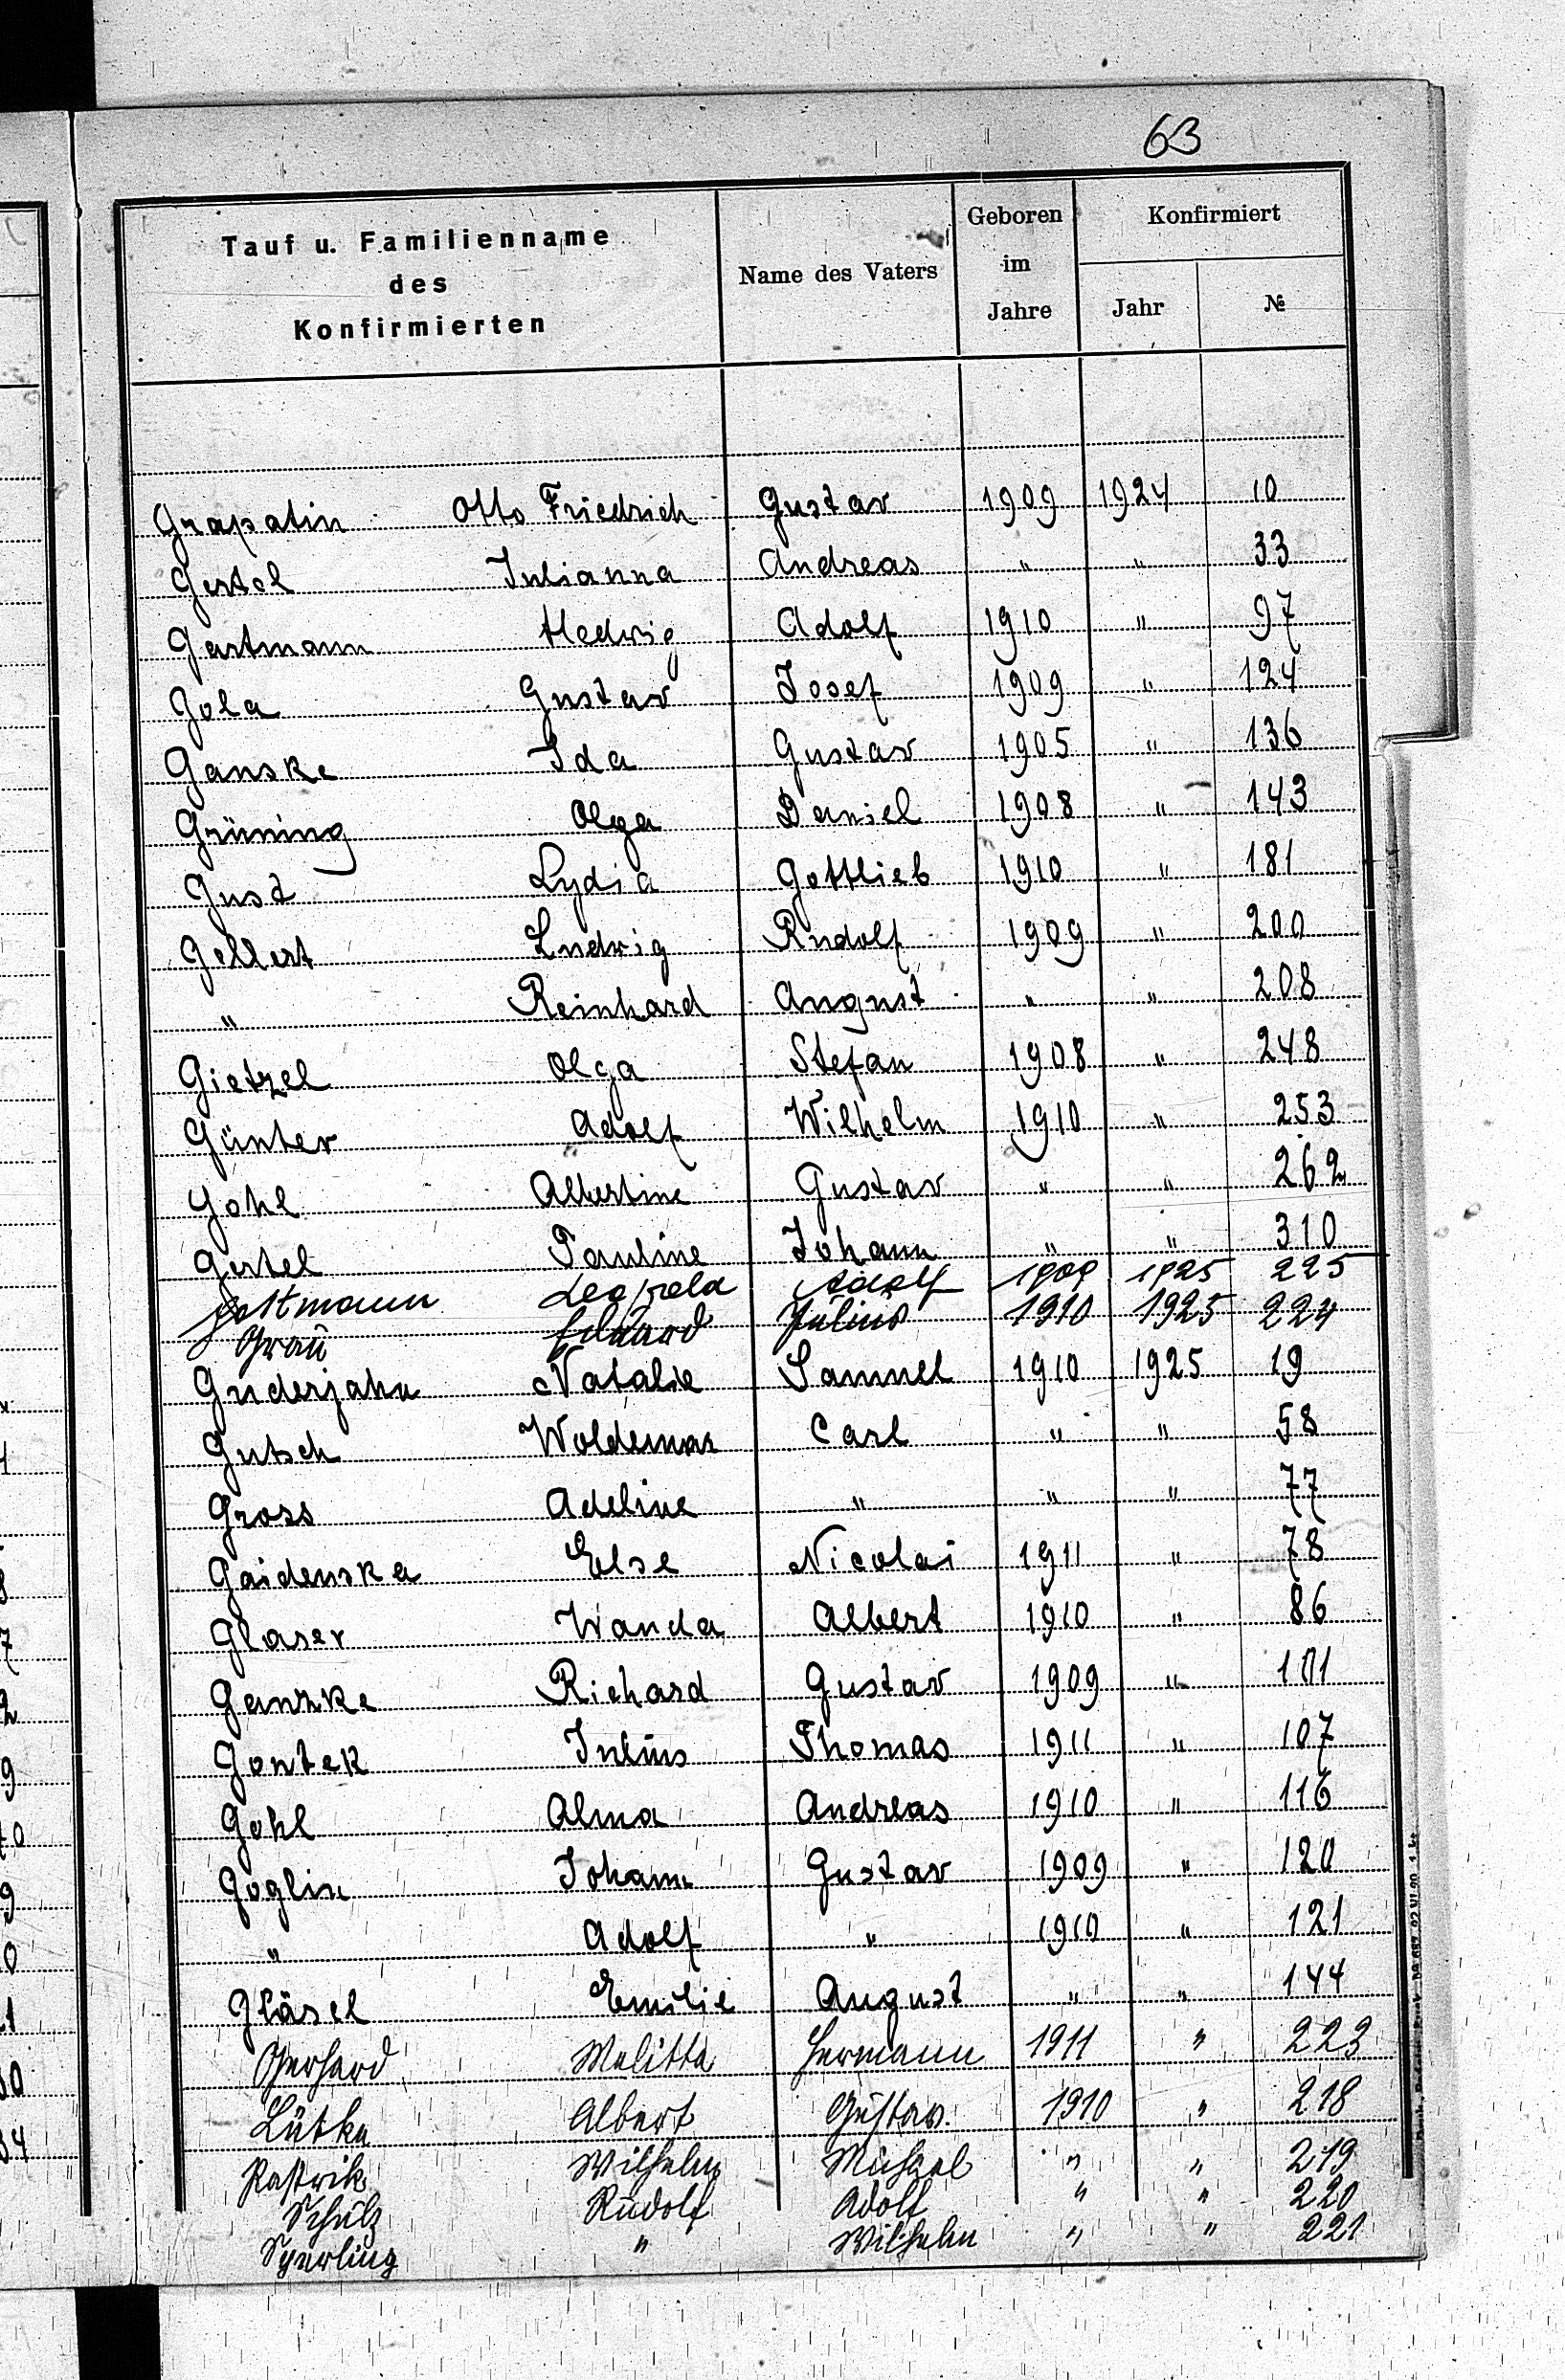 63
Tauf u. Familienname des Konfirmierten | Name des Vaters | Geboren im Jahre | Konfirmiert Jahr | №
Grapatin Otto Friedrich Gustav 1909 1924 10
Gertel Julianna Andreas " " 33
Gertmann Hedwig Adolf 1910 " 97
Gola Gustav Josef 1909 " 124
Ganske Ida Gustav 1905 " 136
Grüning Olga Daniel 1908 " 143
Gust Lydia Gottlieb 1910 " 181
Gellert Ludwig Rudolf 1909 " 200
" Reinhard August " " 208
Gietzel Olga Stefan 1908 " 248
Günter Adolf Wilhelm 1910 " 253
Gohl Albertine Gustav " " 262
Gertel Pauline Johann " " 310
Leopold Adolf 1909 1925 225
Grau Eduard Julius 1910 1925 224
Guderjahn Natalie Samuel 1910 1925 19
Gutsch Woldemar Carl " " 58
Gross Adeline " " " 77
Gaidenska Else Nicolai 1911 " 78
Glaser Wanda Albert 1910 " 86
Ganzke Richard Gustav 1909 " 101
Gontek Julius Thomas 1911 " 107
Gohl Alma Andreas 1910 " 116
Goglin Johann Gustav 1909 " 120
" Adolf " 1910 " 121
Gläsel Emilie August " " 144
Gerhard Melitta Hermann 1911 " 223
Lütke Albert Gustav. 1910 " 218
Pastrik Wilhelm Michael " " 219
Schulz Rudolf Adolf " " 220
Sperling " Wilhelm " " 221